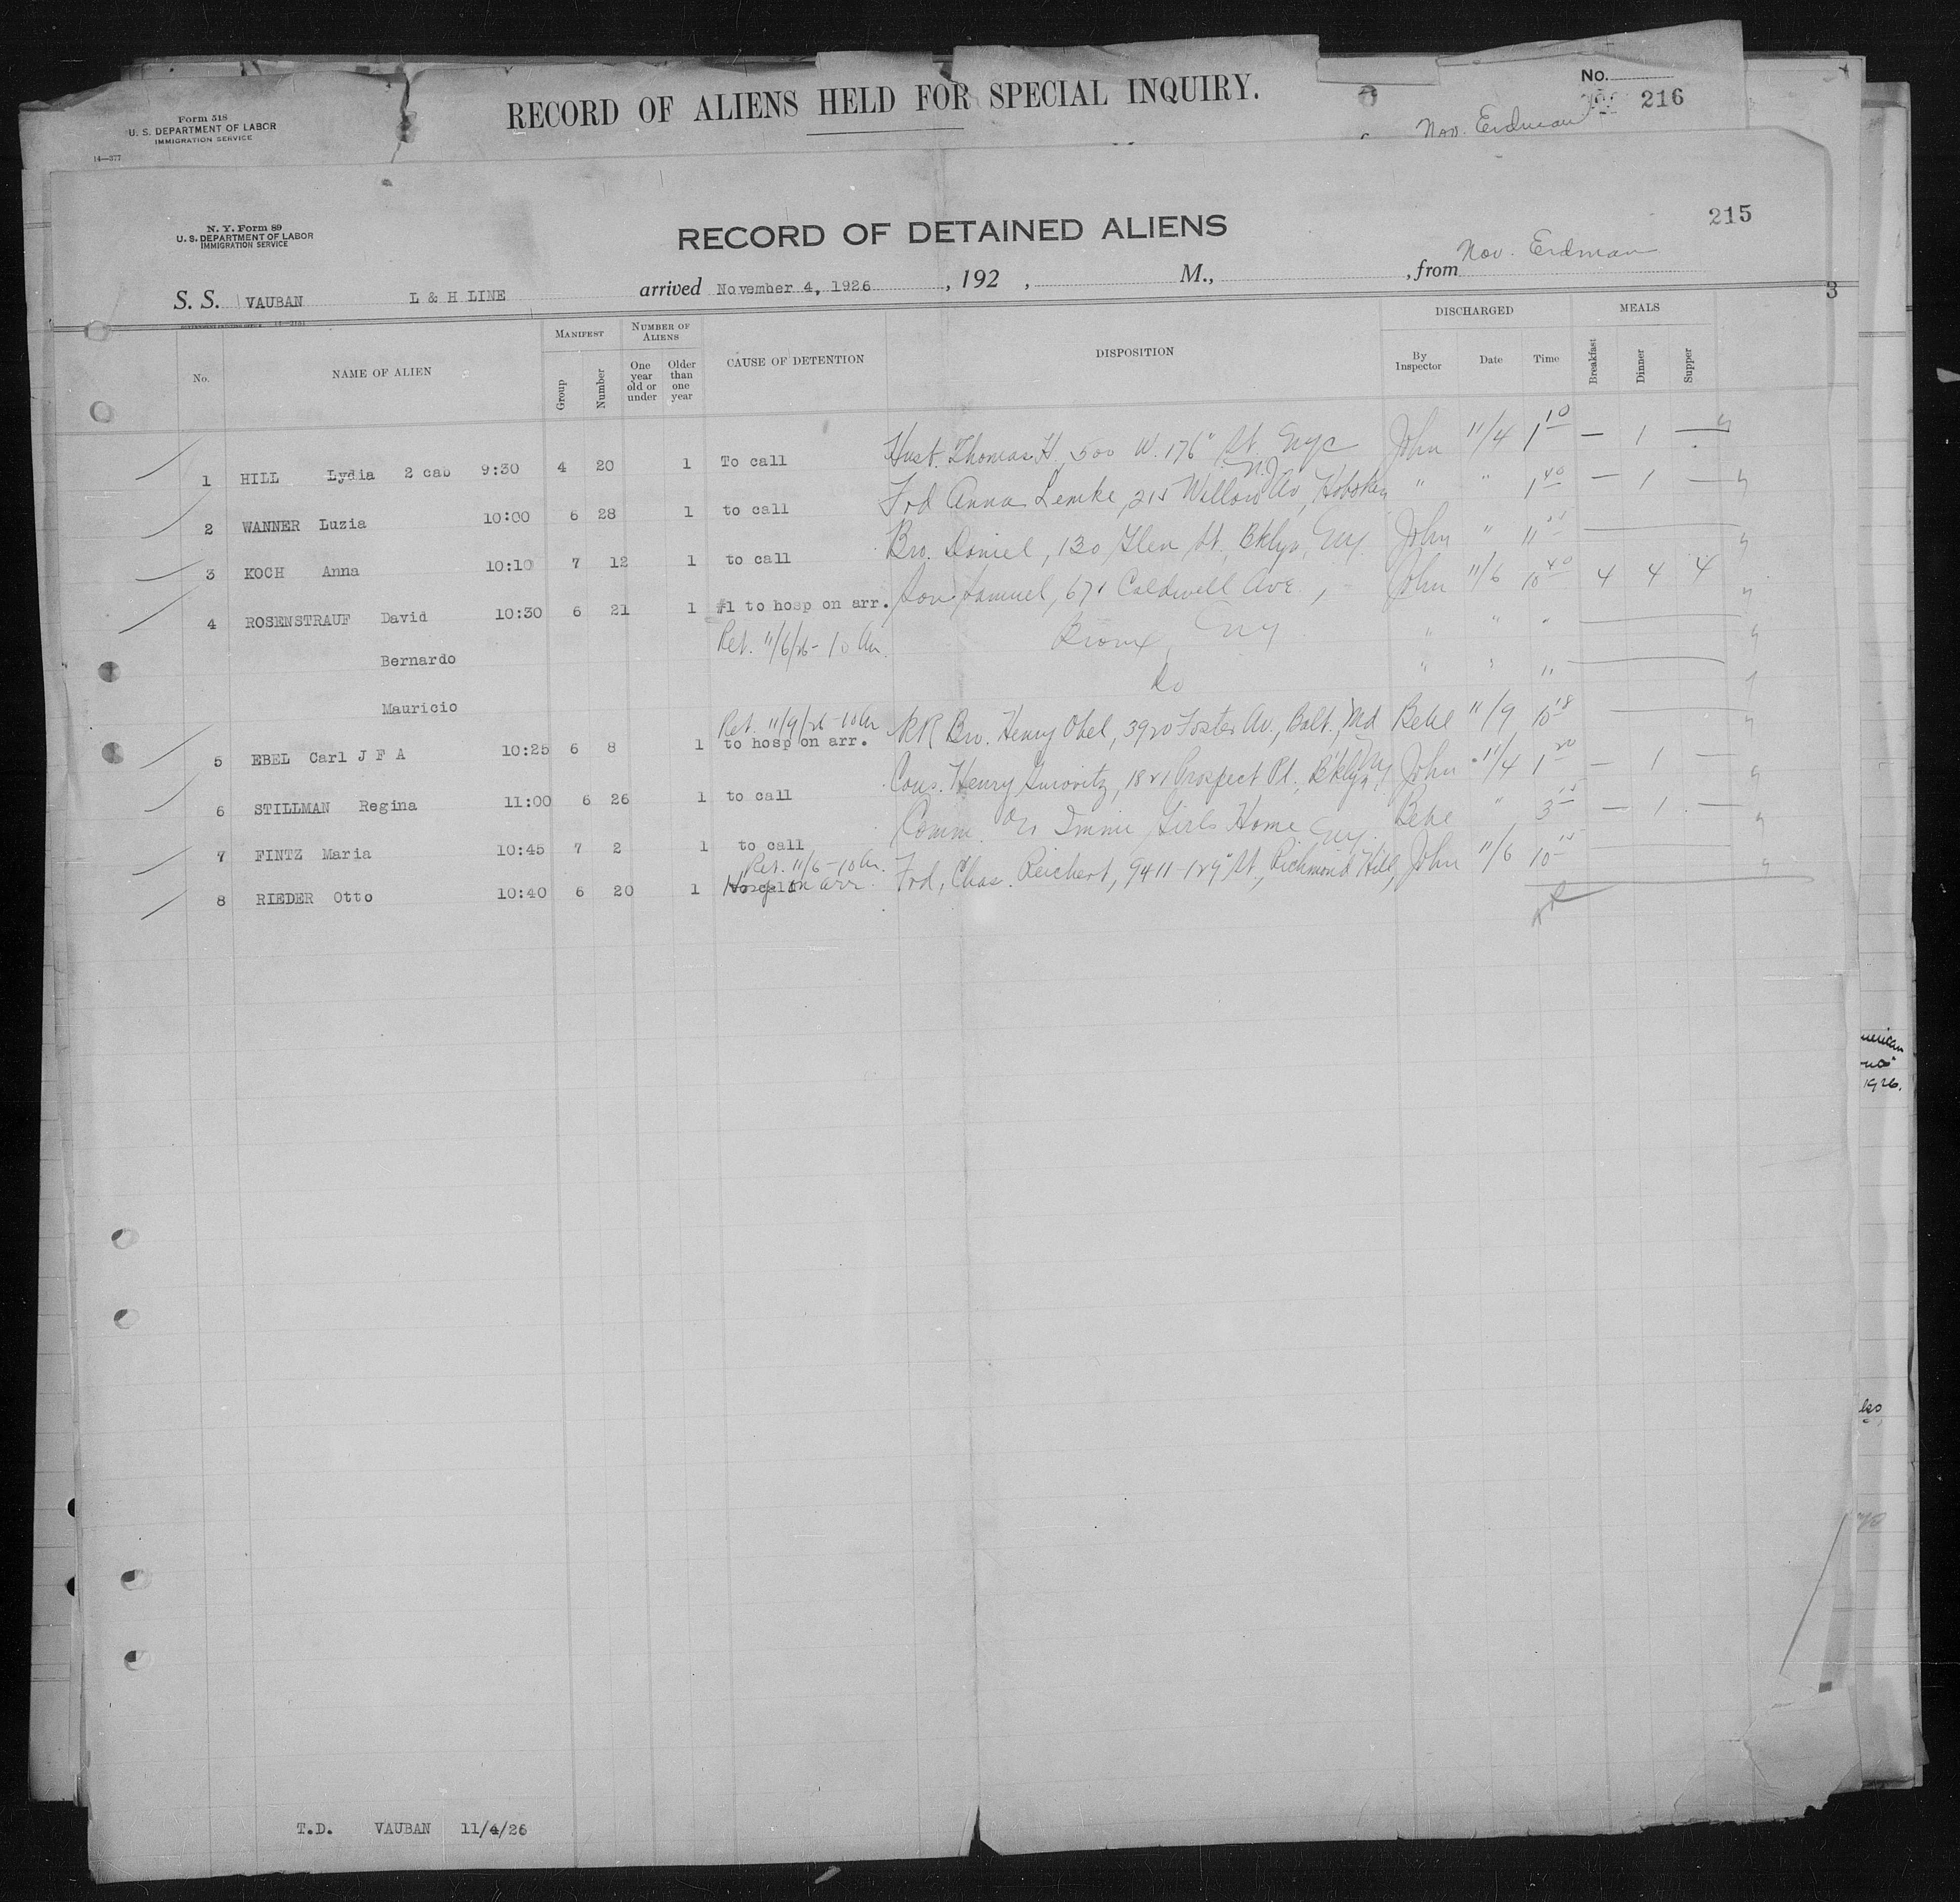 Form 518
U. S. DEPARTMENT OF LABOR
IMMIGRATION SERVICE
14—377
RECORD OF ALIENS HELD FOR SPECIAL INQUIRY.
No.
216
Nov. Erdman
N. Y. Form 89
U. S. DEPARTMENT OF LABOR
IMMIGRATION SERVICE
RECORD OF DETAINED ALIENS
215
S. S. VAUBAN L & H LINE arrived November 4, 1926, 192 , M., , from Nov. Erdman
3
GOVERNMENT PRINTING OFFICE
No. NAME OF ALIEN MANIFEST NUMBER OF ALIENS CAUSE OF DETENTION DISPOSITION DISCHARGED MEALS
Group Number One year old or under Older than one year By Inspector Date Time Breakfast Dinner Supper
1 HILL Lydia 2 cab 9:30 4 20 1 To call Husb. Thomas H, 500 W. 176" St. Nyc John 11/4 1 10 — 1 —
2 WANNER Luzia 10:00 6 28 1 to call Frd Anna Lemke, 215 Willow Av, Hoboken N.J. " " 1 40 — 1 —
3 KOCH Anna 10:10 7 12 1 to call Bro. Daniel, 130 Glen St. Bklyn, Ny. John " 11
4 ROSENSTRAUF David 10:30 6 21 1 #1 to hosp on arr. Son Samuel, 671 Caldwell Ave., John 11/6 10 40 4 4 4
Ret. 11/6/26 - 10 Am. Bronx, Ny " " "
Bernardo
do " " "
Mauricio
Ret. 11/9/26 - 10 Am
5 EBEL Carl J F A 10:25 6 8 1 to hosp on arr. RR Bro. Henry Obel, 3920 Foster Av., Balt., Md Bebe 11/9 10 18
6 STILLMAN Regina 11:00 6 26 1 to call Cous. Henry Gurovitz, 1821 Prospect Pl., Bklyn, Ny John 11/4 1 20 — 1 —
7 FINTZ Maria 10:45 7 2 1 to call Comm. Immi Girls Home Ny. Bebe " 3 — 1 —
Ret. 11/6 - 10 Am.
8 RIEDER Otto 10:40 6 20 1 Hosp on arr. Frd, Chas. Reichert, 9411-129" St., Richmond Hill, John 11/6 10
merican
1926.
T.D. VAUBAN 11/4/26